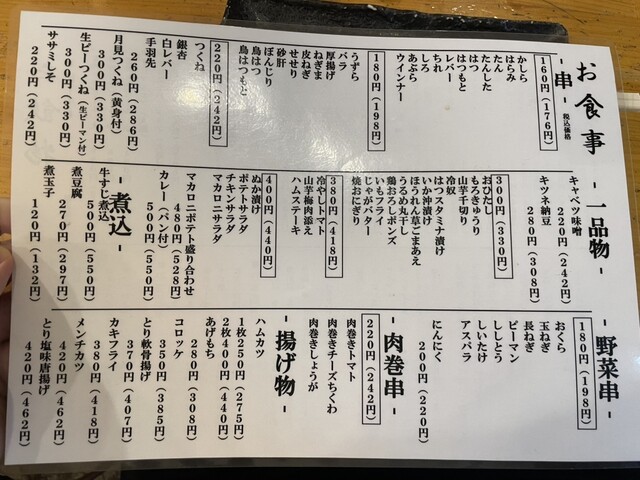 お食事
- 串 -
税込価格
160円(176円)
かしら
はらみ
たん
たんした
はつ
はつもと
レバー
ちれ
しろ
あぶら
ウインナー
180円(198円)
うずら
バラ
厚揚げ
ねぎま
皮ねぎ
せせり
砂肝
ぼんじり
鳥はつ
鳥はつもと
220円(242円)
つくね
銀杏
白レバー
手羽先
260円(286円)
月見つくね(黄身付)
300円(330円)
生ピーつくね(生ピーマン付)
300円(330円)
ササミしそ
220円(242円)
- 一品物 -
キャベツ味噌
220円(242円)
キツネ納豆
280円(308円)
300円(330円)
おひたし
もろきゅうり
山芋千切り
冷奴
はつスタミナ漬け
いか沖漬け
ほうれん草ごまあえ
うるめ丸干し
鶏おろしポンズ
いもフライ
じゃがバター
焼おにぎり
380円(418円)
冷やしトマト
山芋梅肉添え
ハムステーキ
400円(440円)
ぬか漬け
ポテトサラダ
チキンサラダ
マカロニサラダ
マカロニポテト盛り合わせ
480円(528円)
カレー(パン付)
500円(550円)
- 煮込 -
牛すじ煮込
500円(550円)
煮豆腐
270円(297円)
煮玉子
120円(132円)
- 野菜串 -
180円(198円)
おくら
玉ねぎ
長ねぎ
ピーマン
ししとう
しいたけ
アスパラ
にんにく
200円(220円)
- 肉巻串 -
220円(242円)
肉巻きトマト
肉巻きチーズちくわ
肉巻きしょうが
- 揚げ物 -
ハムカツ
1枚250円(275円)
2枚400円(440円)
あげもち
280円(308円)
コロッケ
350円(385円)
とり軟骨揚げ
370円(407円)
カキフライ
380円(418円)
メンチカツ
420円(462円)
とり塩味唐揚げ
420円(462円)